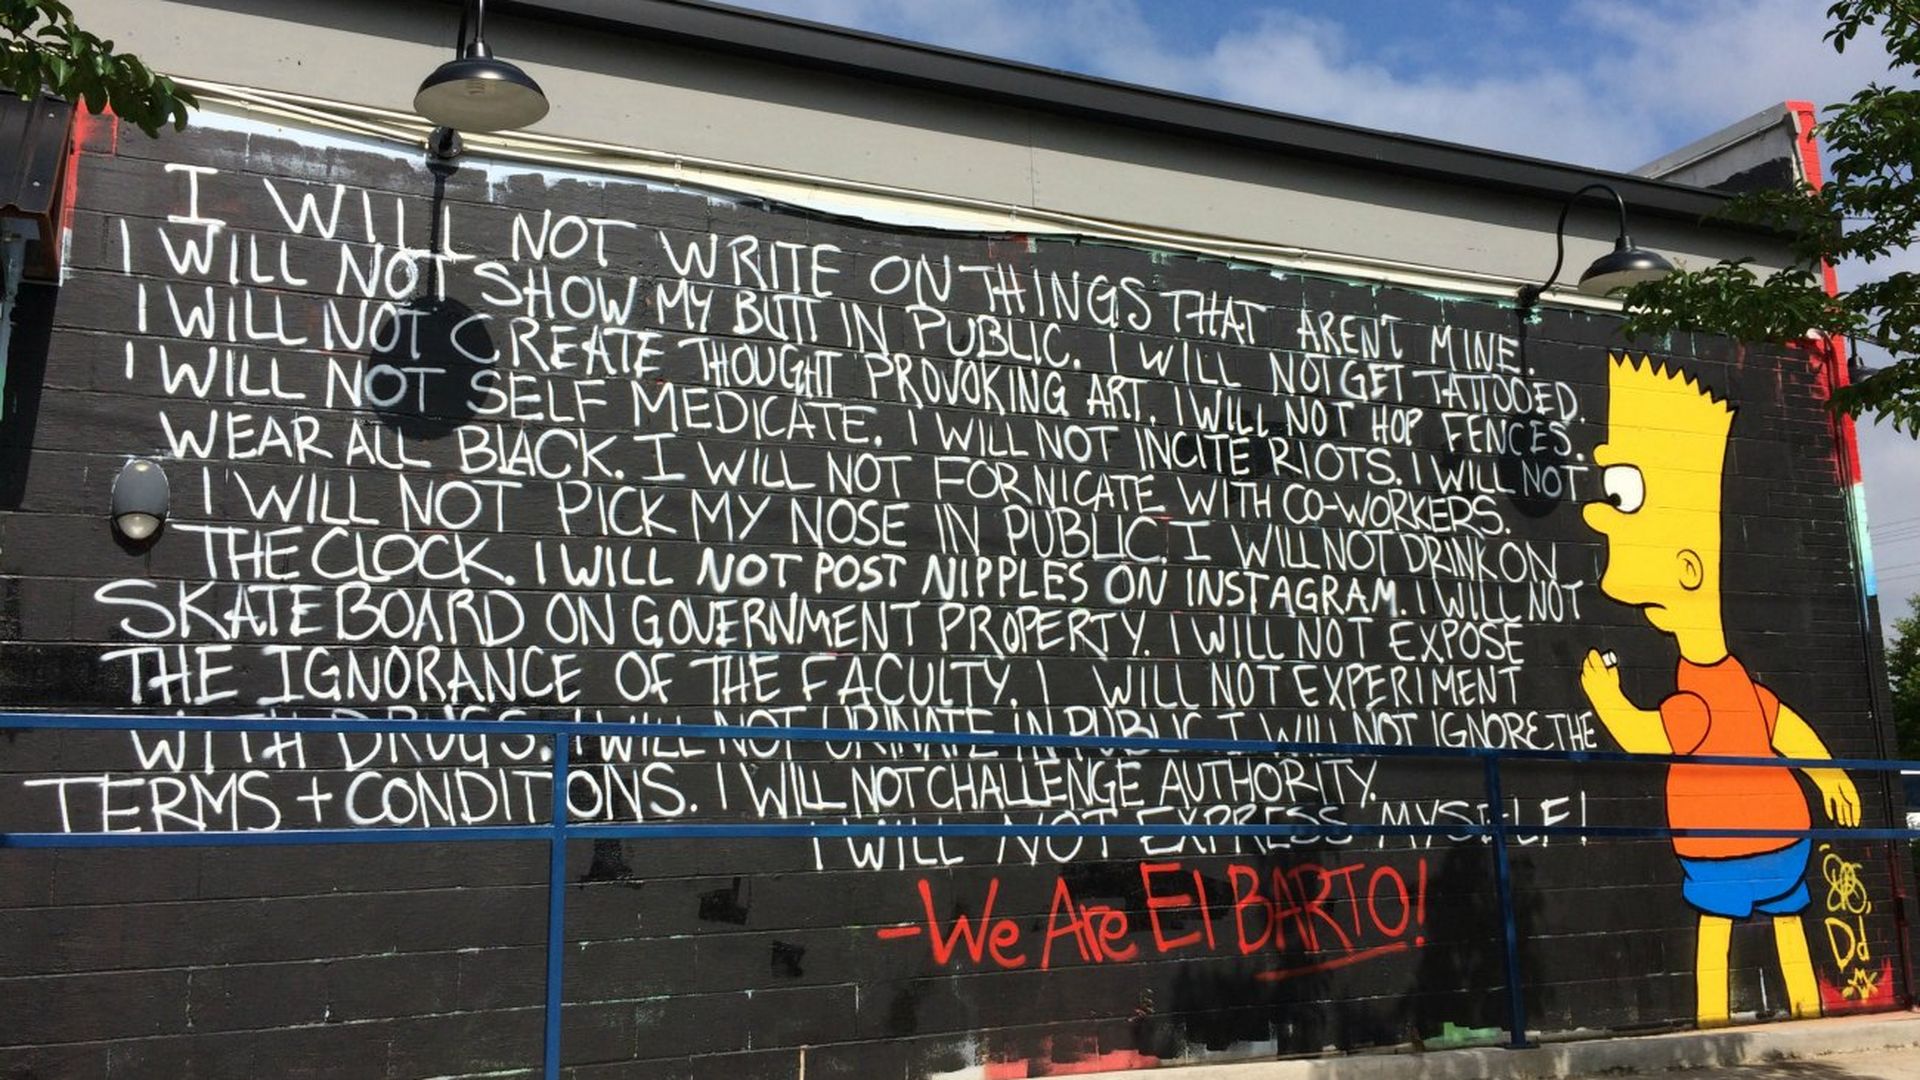 I WILL NOT WRITE ON THINGS THAT AREN'T MINE.
I WILL NOT SHOW MY BUTT IN PUBLIC. I WILL NOT GET TATTOOED.
I WILL NOT CREATE THOUGHT PROVOKING ART. I WILL NOT HOP FENCES.
I WILL NOT SELF MEDICATE. I WILL NOT INCITE RIOTS. I WILL NOT
WEAR ALL BLACK. I WILL NOT FORNICATE WITH CO-WORKERS.
I WILL NOT PICK MY NOSE IN PUBLIC. I WILL NOT DRINK ON
THE CLOCK. I WILL NOT POST NIPPLES ON INSTAGRAM. I WILL NOT
SKATEBOARD ON GOVERNMENT PROPERTY. I WILL NOT EXPOSE
THE IGNORANCE OF THE FACULTY. I WILL NOT EXPERIMENT
WITH DRUGS. I WILL NOT URINATE IN PUBLIC I WILL NOT IGNORE THE
TERMS + CONDITIONS. I WILL NOT CHALLENGE AUTHORITY.
I WILL NOT EXPRESS MYSELF!
-We Are El BARTO!
Dd